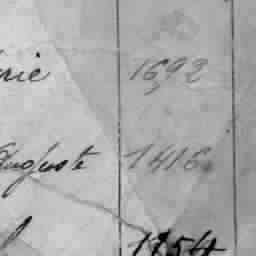 rie 1692
Auguste 1416
1854